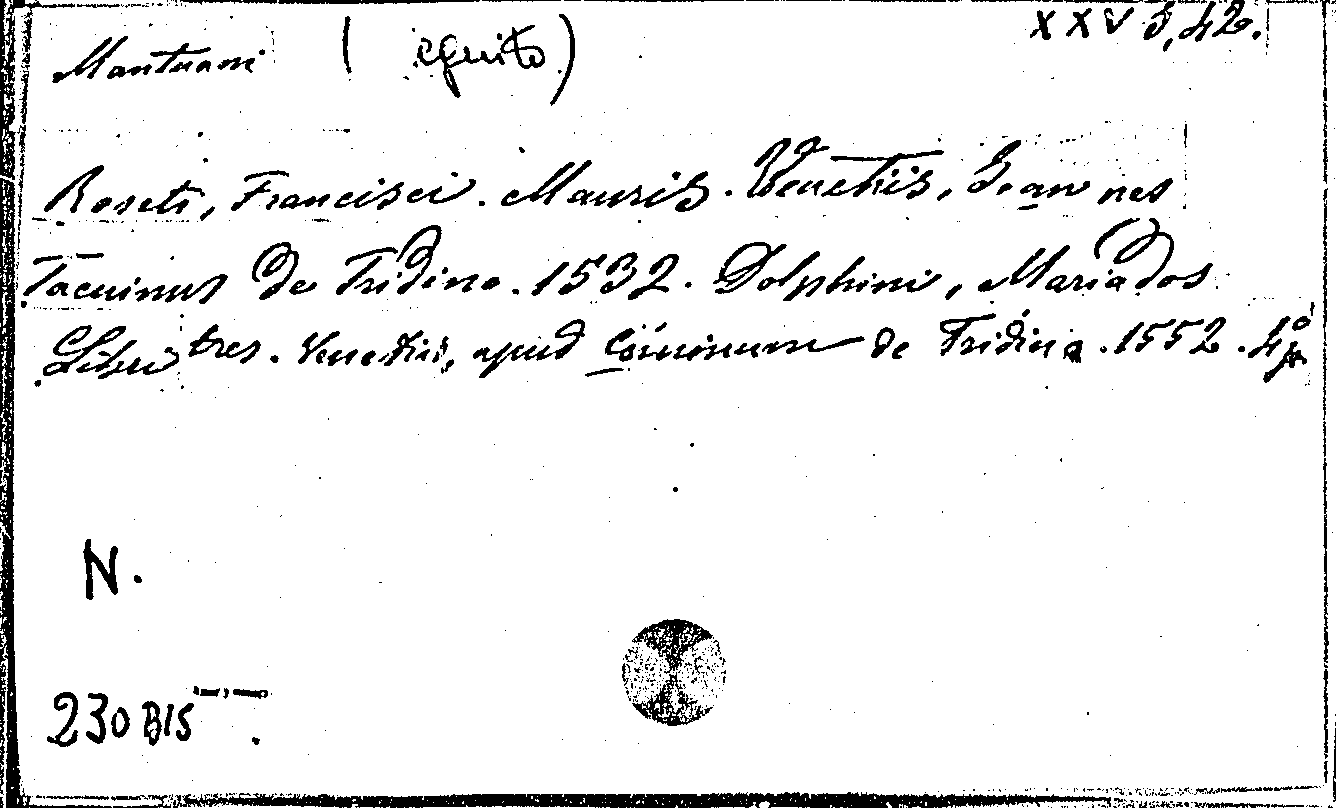 XXV 3,42.
Mantuani ( equito)
Roseti, Francisci. Mauris. Venetiis, Joannes
Tacuinus de Tridino. 1532. Dolphini, Mariados
Libri tres. Venetiis, apud Cominum de Tridino. 1552. 4º
N.
230 BIS